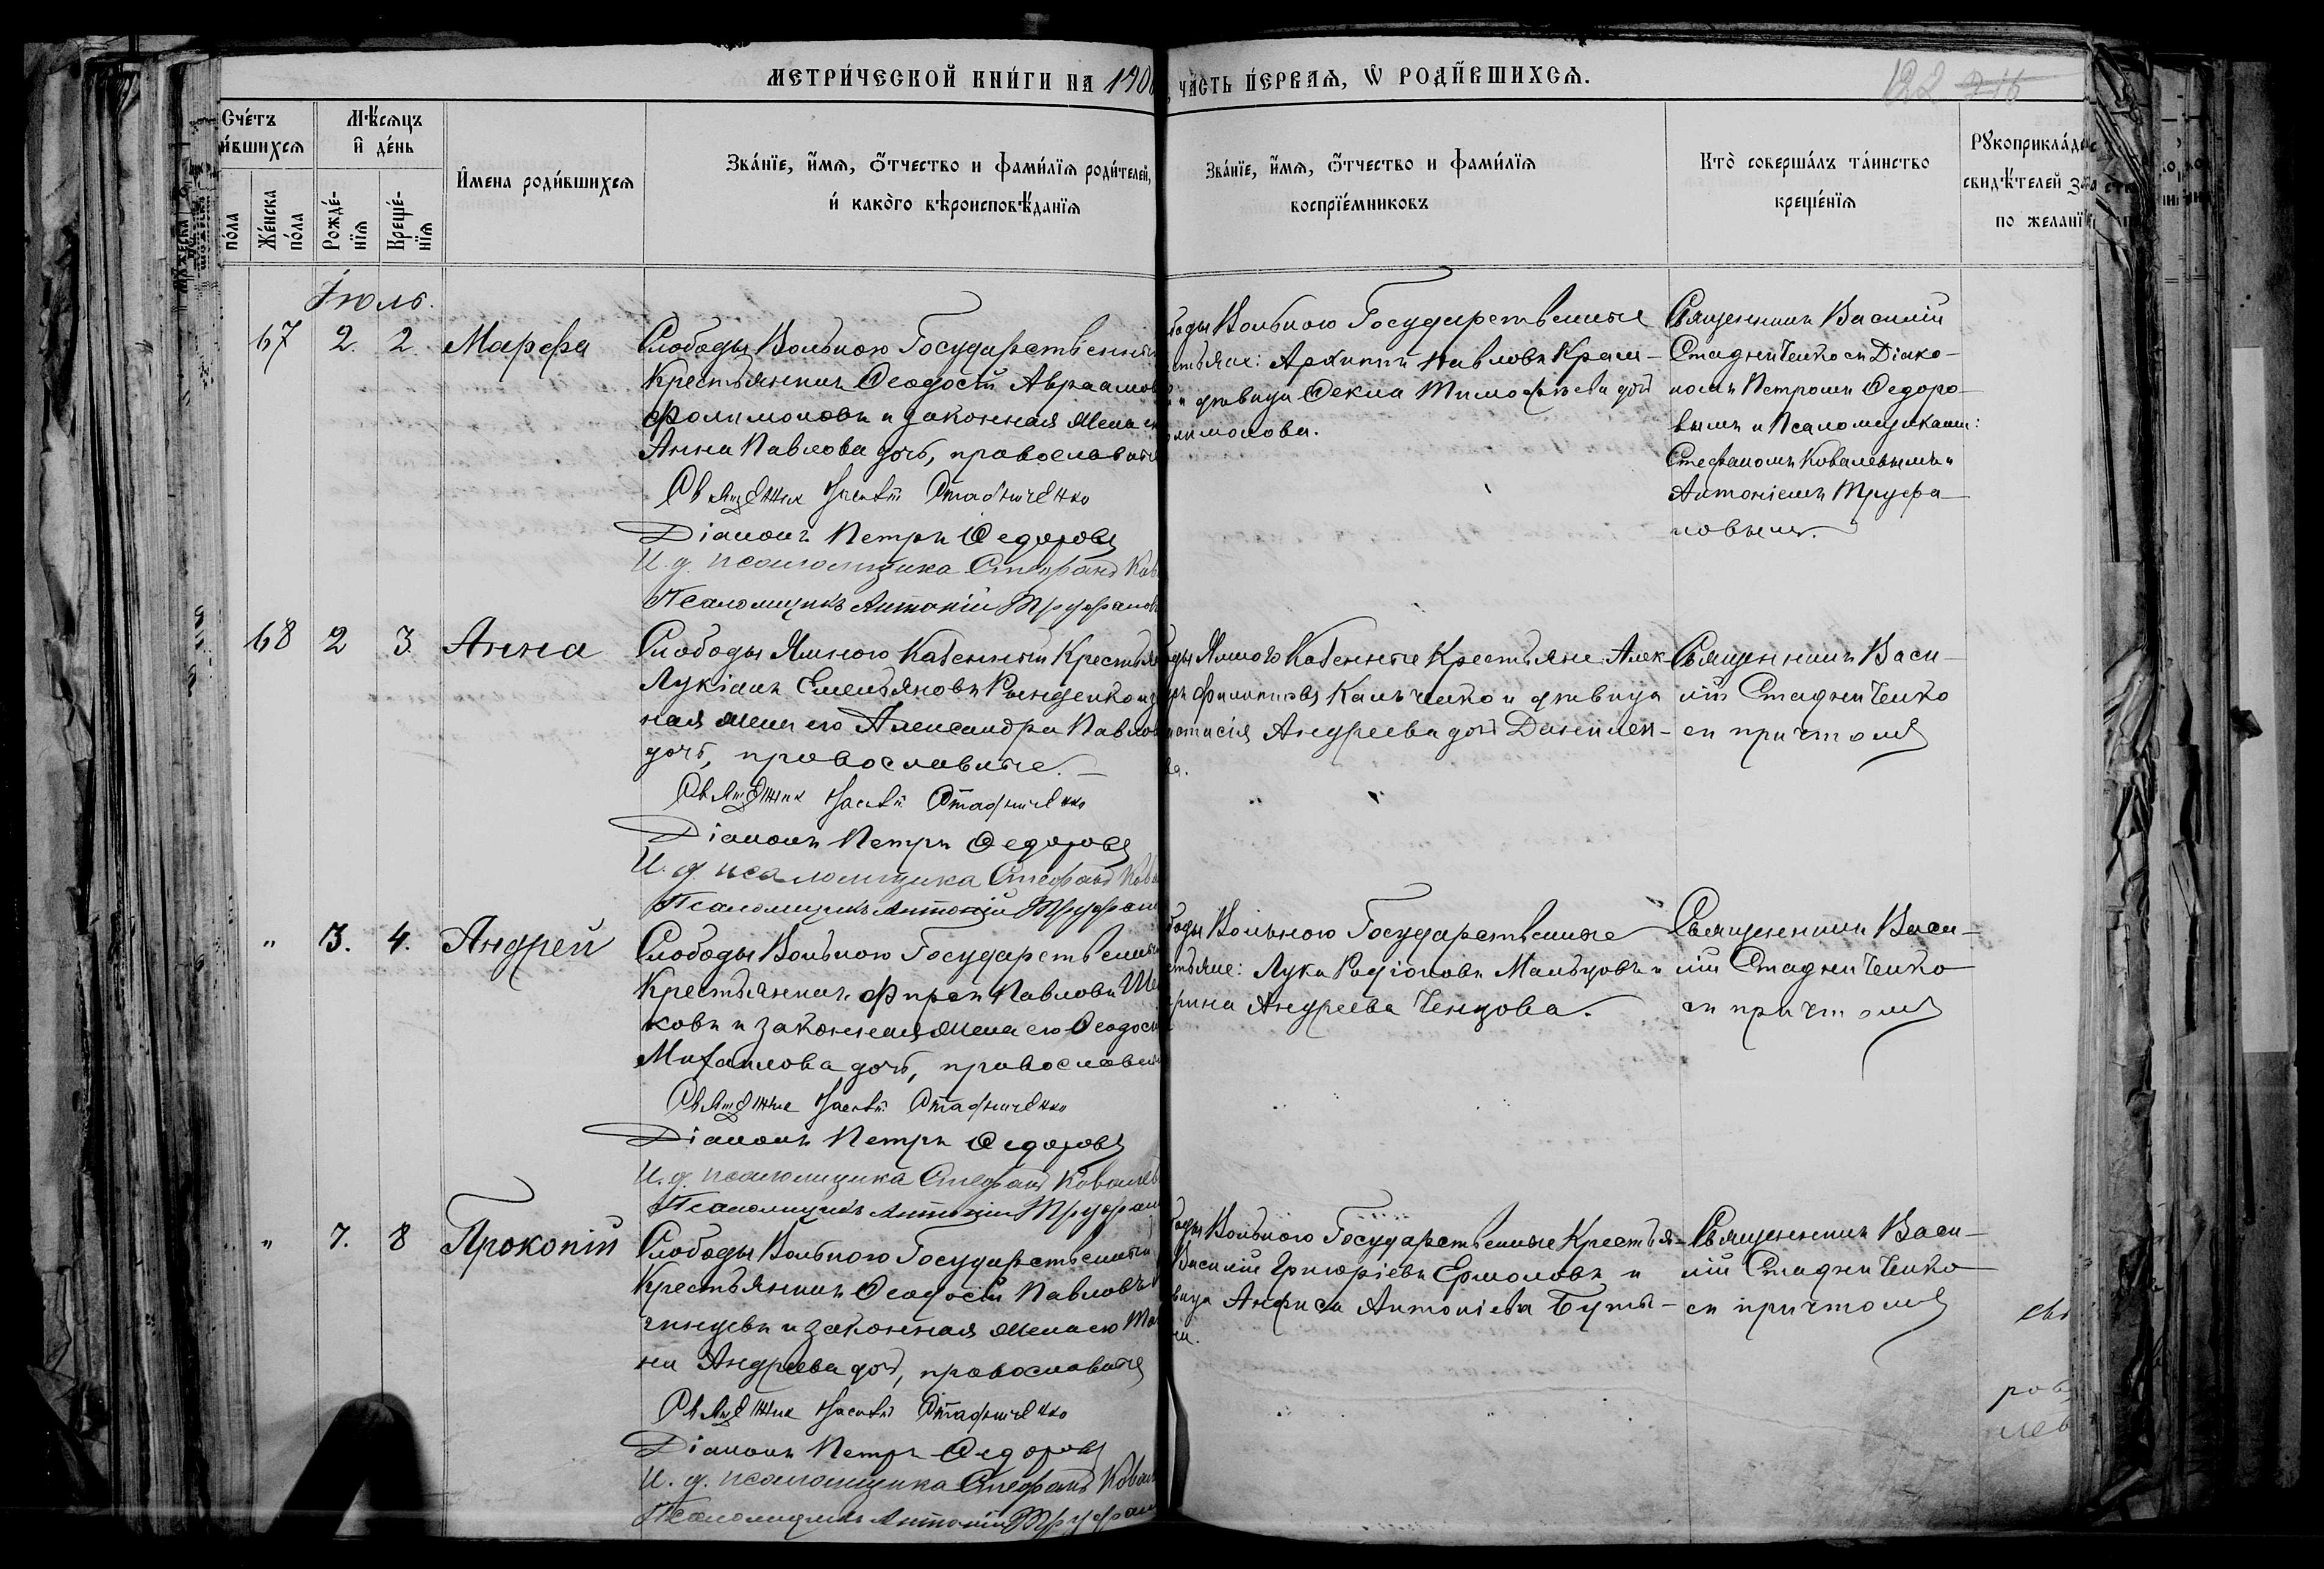 МЕТРИ́ЧЕСКОЙ КНИ́ГИ НА 190
ЧА́СТЬ ПЕ́РВАѦ, Ѿ РОДИ́ВШИХСѦ.
122 216
Сче́тъ
и́вшихсѧ
Мѣ́сѧцъ
и҆ де́нь
по́ла
Же́нска
по́ла
Рожде́-
нїѧ
Креще́-
нїѧ
И҆мена роди́вшихсѧ
Зва́нїе, и҆́мѧ, ѻ҆́тчество и фами́лїѧ роди́телей,
и҆ како́го вѣроисповѣ́данїѧ
Зва́нїе, и҆́мѧ, ѻ҆́тчество и фами́лїѧ
воспрїе́мниковъ
Кто̀ соверша́лъ та́инство
креще́нїѧ
Рꙋкоприкла́д
свидѣ́телей
по желанї
Іюль.
67 2. 2. Марфа
Слободы Вольного Государственный
Крестьянинъ Ѳеодосій Авраамовъ
Филимоновъ и законная жена его
Анна Павлова дочь, православные
Священник Василій Стадниченко
Діаконъ Петръ Ѳедоровъ
И. д. псаломщика Стефанъ Ков
Псаломщикъ Антоній Труфановъ
боды Вольного Государственные
стьяне: Архипъ Павловъ Крам-
и дѣвица Ѳекла Тимофѣева дочь
лимонова.
Священникъ Василій
Стадниченко съ Діако-
номъ Петромъ Ѳедоро-
вымъ и Псаломщиками:
Стефаномъ Ковалевымъ и
Антоніемъ Труфа-
новымъ.
68 2 3 Анна
Слободы Ямного Казенный Крестья
Лукіанъ Емельяновъ
ная жена его Александра Павлов
дочь, православные.
Священник Василій Стадниченко
Діаконъ Петръ Ѳедоровъ
И. д. псаломщика Стефанъ Кова
Псаломщикъ Антоній Труфан
ды Ямного Казенные Крестьяне: Алек-
дръ Филиповъ и дѣвица
астасія Андреева дочь Данилен-
ва.
Священникъ Васи-
лій Стадниченко
съ причтомъ
" 3. 4. Андрей
Слободы Вольного Государственный
Крестьянинъ Фирсъ Павловъ Ше
ковъ и законная жена его Ѳеодос
Михаилова дочь, православные
Священник Василій Стадниченко
Діаконъ Петръ Ѳедоровъ
И. д. псаломщика Стефанъ Ковалев
Псаломщикъ Антоній Труфан
боды Вольного Государственные
стьяне: Лука Родіоновъ Мальцовъ и
рина Андреева Ченцова.
Священникъ Васи-
лій Стадниченко
съ причтомъ
" 7. 8 Прокопій
Слободы Вольного Государственный
Крестьянинъ Ѳеодосій Павловъ
чинцевъ и законная жена его Тат
на Андреева дочь, православные
Священник Василій Стадниченко
Діаконъ Петръ Ѳедоровъ
И. д. псаломщика Стефанъ Ковал
Псаломщикъ Антоній Труфан
боды Вольного Государственные Крестья-
Василій Григоріевъ Ермоловъ и
вица Анфиса Антоніева Буты-
на.
Священникъ Васи-
лій Стадниченко
съ причтомъ
свя
ров
лев